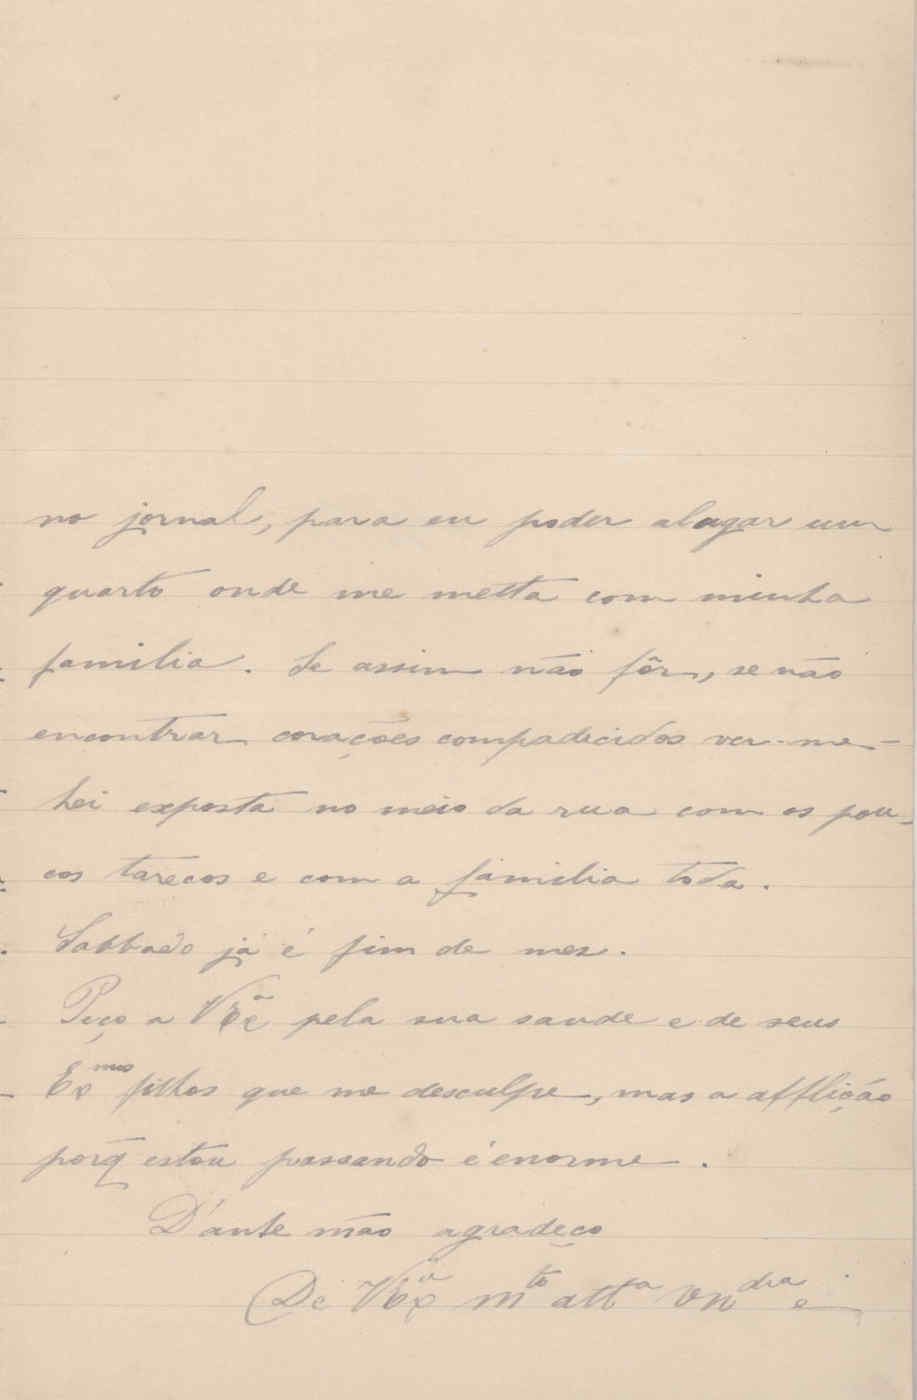 no jornal, para eu poder alugar um
quarto onde me metta com minha
familia. Se assim não fôr, se não
encontrar corações compadecidos ver-me-
hei exposta no meio da rua com os pou-
cos tarecos e com a familia toda.
Sabbado já é fim de mez.
Peço a VExª pela sua saude e de seus
Exmos filhos que me desculpe, mas a afflição
porq̃ estou passando é enorme.
D'ante mão agradeço
De VExª mto atta Vndra e